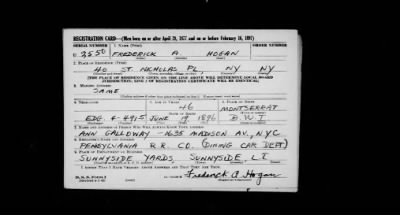 REGISTRATION CARD—(Men born on or after April 28, 1877 and on or before February 16, 1897)
SERIAL NUMBER 1. NAME (Print) ORDER NUMBER
FREDERICK A HOGAN
2. PLACE OF RESIDENCE (Print)
40 ST. NICHOLAS PL, NY NY
[THE PLACE OF RESIDENCE GIVEN ON THE LINE ABOVE WILL DETERMINE LOCAL BOARD
JURISDICTION; LINE 2 OF REGISTRATION CERTIFICATE WILL BE IDENTICAL]
3. MAILING ADDRESS
SAME
4. TELEPHONE 5. AGE IN YEARS 6. PLACE OF BIRTH
46 MONTSERRAT
EDG. 4-4915 JUNE 19 1896 B.W.I
7. NAME AND ADDRESS OF PERSON WHO WILL ALWAYS KNOW YOUR ADDRESS
ANN GALLOWAY - 1635 MADISON AV., NYC
8. EMPLOYER'S NAME AND ADDRESS
PENNSYLVANIA R.R. CO. (DINING CAR DEPT)
9. PLACE OF EMPLOYMENT OR BUSINESS
SUNNYSIDE YARDS SUNNYSIDE, L I
I AFFIRM THAT I HAVE VERIFIED ABOVE ANSWERS AND THAT THEY ARE TRUE.
Frederick A. Hogan